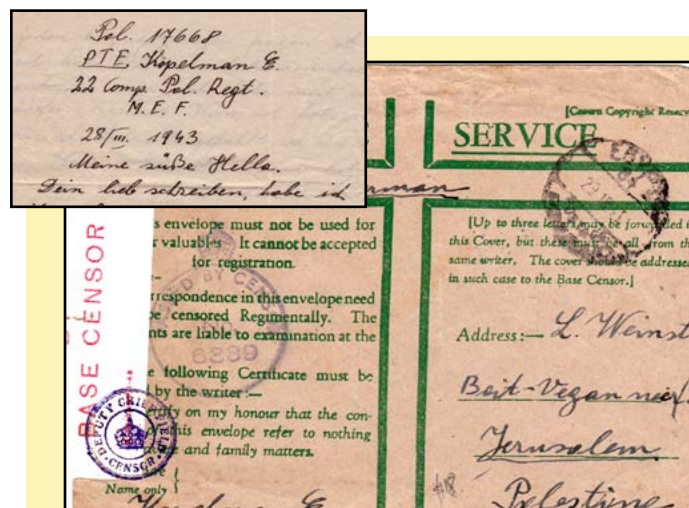 Pal. 17668
PTE. Kopelman E.
22 Comp. Pal. Regt.
M. E. F.
28/III. 1943
Meine süße Hella.
Dein lieb schreiben, habe ich
SERVICE
[Crown Copyright Reserv
s envelope must not be used for
r valuables It cannot be accepted
for registration.
rrespondence in this envelope need
be censored Regimentally. The
nts are liable to examination at the
e following Certificate must be
d by the writer :—
on my honour that the con-
this envelope refer to nothing
and family matters.
Name only
[Up to three letters may be forwarded i
this Cover, but these must be all from th
same writer. The cover should be addressed
in such case to the Base Censor.]
Address:— L. Weinst
Bait-Vegan
Jerusalem
Palestine
BASE CENSOR
BY CENSOR
6389
DEPUTY CHIEF FIELD
CENSOR